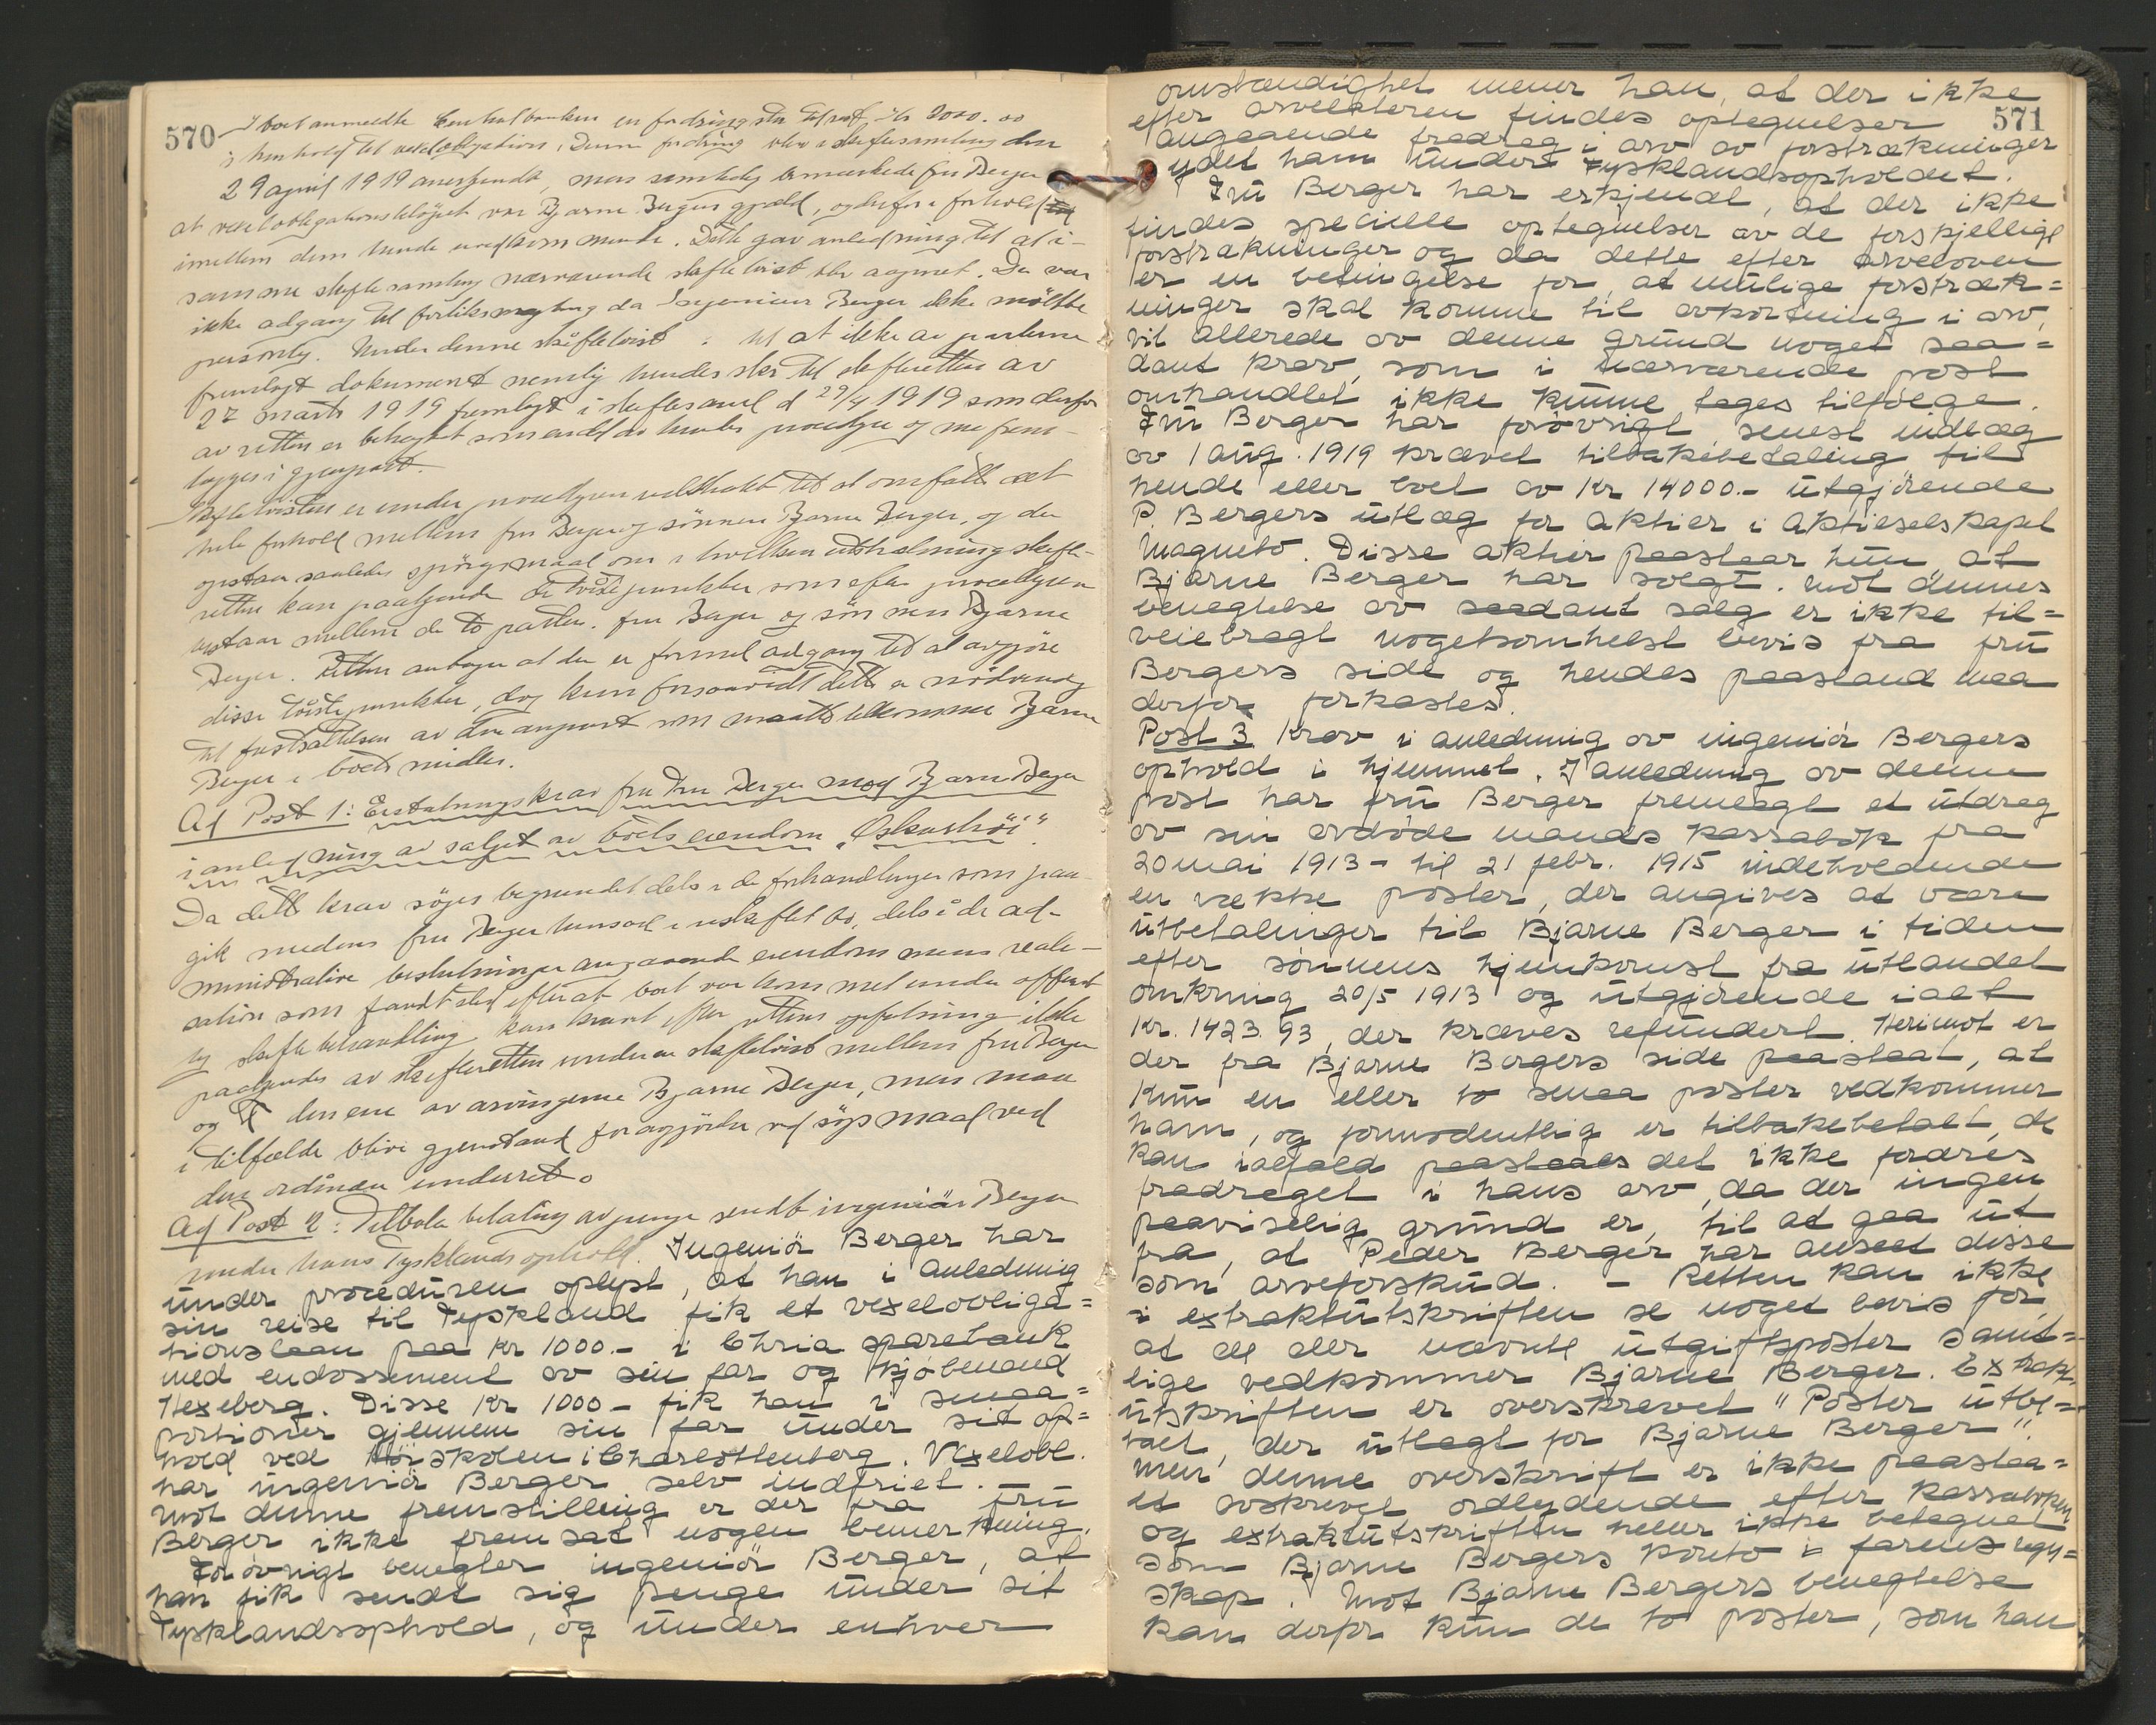 570
I boet anmeldte Centralbanken en fordring stor til rest, kr 3000.00
i henhold til vexelobligation. Denne fordring blev i skiftesamling den
29 april 1919 anerkjendt, men samtidig bemerkede fru Berger
at vexelobligationsbeløpet var Bjarne Bergers gjæld, og derfor i forhold
imellem dem hende uvedkommende. Dette gav anledning til at i
samme skiftesamling nærværende skiftetvist blev aapnet. Der var
ikke adgang til forliksmegling da Ingeniør Berger ikke møtte
personlig. Under denne skiftetvist : til at ikke av parterne
fremlagt dokument nemlig hendes skr til skifteretten av
27 marts 1919 fremlagt i skiftesaml d 29/4 1919 som derfor
av retten er betragtet som endel av hendes procedyre og me frem-
lægges i gjenpart.
Skiftetvisten er under procedyren utstrakt til at omfatte det
hele forhold mellem fru Berger og sønnen Bjarne Berger, og der
opstaar saaledes spørgsmaal om i hvilken utstrækning skifte-
retten kan paakjende de tvistepunkter som efter procedyren
opstaar mellem de to parter. fru Berger og søn nen Bjarne
Berger. Retten antager at der er formel adgang til at avgjøre
disse tvistepunkter, dog kun forsaavidt dette er nødvendig
til fastsættelsen av den arvepart som maatte tilkomme Bjarne
Berger i boets midler.
Ad Post 1: Erstatningskrav fra Fru Berger mod Bjarne Berger
i anledning av salget av boets eiendom "Oskarshöi".
Da dette krav søges begrundet dels i de forhandlinger som paa-
gik medens fru Berger hensad i uskiftet bo, dels i de ad-
ministrative beslutninger angaaende eiendommens reali-
sation som fandt sted efterat boet var kommet under offent-
lig skiftebehandling, kan kravet efter rettens opfatning ikke
paakjendes av skifteretten under en skiftetvist mellem fru Berger
og den ene av arvingerne Bjarne Berger, men maa
i tilfælde blive gjenstand for avgjørelse ved søgsmaal ved
den ordinære underret.
Ad Post 2: Tilbake betaling av penge sendt ingeniør Berger
under hans Tysklands ophold. Ingeniör Berger har
under proceduren oplyst, at han i anledning
sin reise til Tyskland fik et vexelobliga=
tionslaan paa kr 1000.- i Chria sparebank
med endossement av sin far og kjöbmand
Hexeberg. Disse kr 1000- fik han i smaa=
portioner gjennem sin far under sit op=
hold ved Höiskolen i Charlottenberg. Vexelobl.
har ingeniör Berger selv indfriet. -
Mot denne fremstilling er der fra fru
Berger ikke fremsat nogen bemerkning.
Forövrigt benegter ingeniör Berger, at
han fik sendt sig penge under sit
Tysklandsophold, og under enhver
571
omstændighet mener han, at der ikke
efter arveladeren findes optegnelser
angaaende fradrag i arv av forstrækninger
ydet ham under Tysklandsopholdet.
Fru Berger har erkjendt, at der ikke
findes specielle optegnelser av de forskjellige
forstrækninger og da dette efter arveloven
er en betingelse for, at mulige forstræk=
ninger skal komme til avkortning i arv,
vil allerede av denne grund noget saa=
dant krav, som i nærværende post
omhandlet ikke kunne tages tilfölge.
Fru Berger har forövrigt senest indlæg
av 1 aug. 1919 krævet tilbakebetaling til
hende eller boet av kr 14000.- utgjörende
P. Bergers utlæg for aktier i Aktieselskapet
Magneto. Disse aktier paastaar hun, at
Bjarne Berger har solgt. Mot dennes
benegtelse av saadant salg er ikke til=
veiebragt nogetsomhelst bevis fra fru
Bergers side og hendes paastand maa
derfor forkastes.
Post 3 krav i anledning av ingeniör Bergers
ophold i hjemmet. I anledning av denne
post har fru Berger fremlagt et utdrag
av sin avdöde mands kassabok fra
20 mai 1913- til 21 febr. 1915 indeholdende
en række poster, der angives at være
utbetalinger til Bjarne Berger i tiden
efter sönnens hjemkomst fra utlandet
omkring 20/5 1913 og utgjörende ialt
kr. 1423.93, der kræves refundert. Herimot er
der fra Bjarne Bergers side paastaat, at
kun en eller to smaa poster vedkommer
ham, og formodentlig er tilbakebetalt, de
kan ialfald paastaaes det ikke fordres
fradraget i hans arv, da der ingen
paaviselig grund er, til at gaa ut
fra, at Peder Berger har anseet disse
som arveforskud. - Retten kan ikke
i extraktutskriften se noget bevis for,
at de der nævnte utgiftsposter samt=
lige vedkommer Bjarne Berger. Extrakt
utskriften er overskrevet "Poster utbe=
talt, der utlagt for Bjarne Berger".
men denne overskrift er ikke paastaa=
et avskrevet ordlydende efter kassaboken
og extraktutskriften heller ikke betegnet
som Bjarne Bergers konto i farens regn=
skap. Mot Bjarne Bergers benegtelse
kan derfor kun de to poster, som han